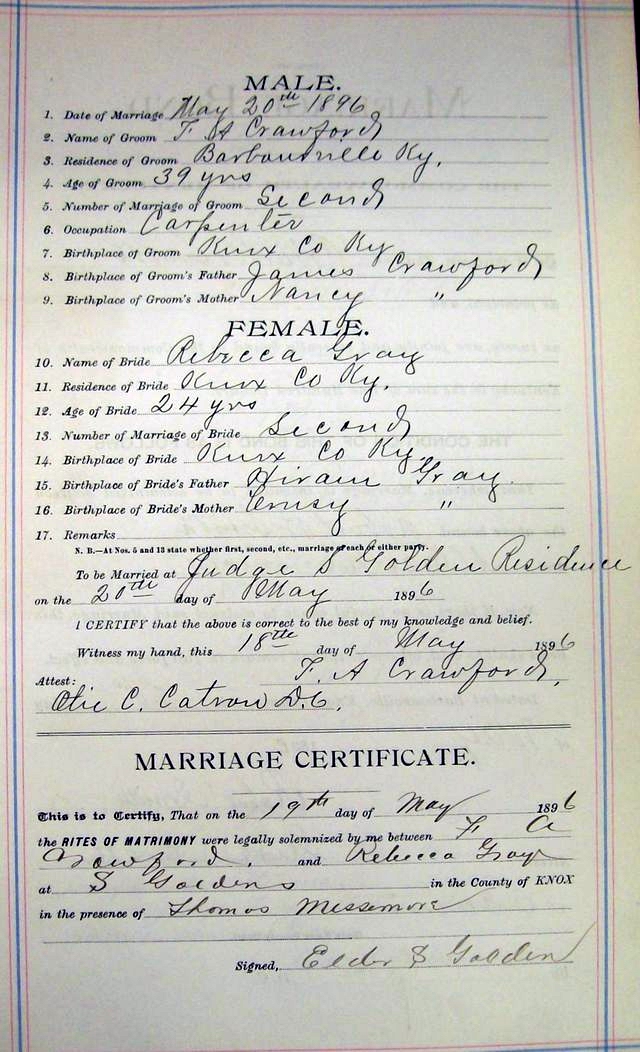 MALE.
1. Date of Marriage May 20th 1896
2. Name of Groom F A Crawford
3. Residence of Groom Barbourville Ky,
4. Age of Groom 39 yrs
5. Number of Marriage of Groom Second
6. Occupation Carpenter
7. Birthplace of Groom Knox Co Ky
8. Birthplace of Groom's Father James Crawford
9. Birthplace of Groom's Mother Nancy "
FEMALE.
10. Name of Bride Rebecca Gray
11. Residence of Bride Knox Co Ky.
12. Age of Bride 24 yrs
13. Number of Marriage of Bride Second
14. Birthplace of Bride Knox Co Ky
15. Birthplace of Bride's Father Hiram Gray.
16. Birthplace of Bride's Mother "
17. Remarks
N. B.—At Nos. 5 and 13 state whether first, second, etc., marriage of each or either party.
To be Married at Judge S Golden Residence
on the 20th day of May 1896
I CERTIFY that the above is correct to the best of my knowledge and belief.
Witness my hand, this 18th day of May 1896
F. A Crawford,
Attest:
C. Catron D.C.
MARRIAGE CERTIFICATE.
This is to Certify, That on the 19th day of May 1896
the RITES OF MATRIMONY were legally solemnized by me between F A
Crawford. and Rebecca Gray
at S Goldens in the County of KNOX
in the presence of Thomas Messemore
Signed, Elder S Golden